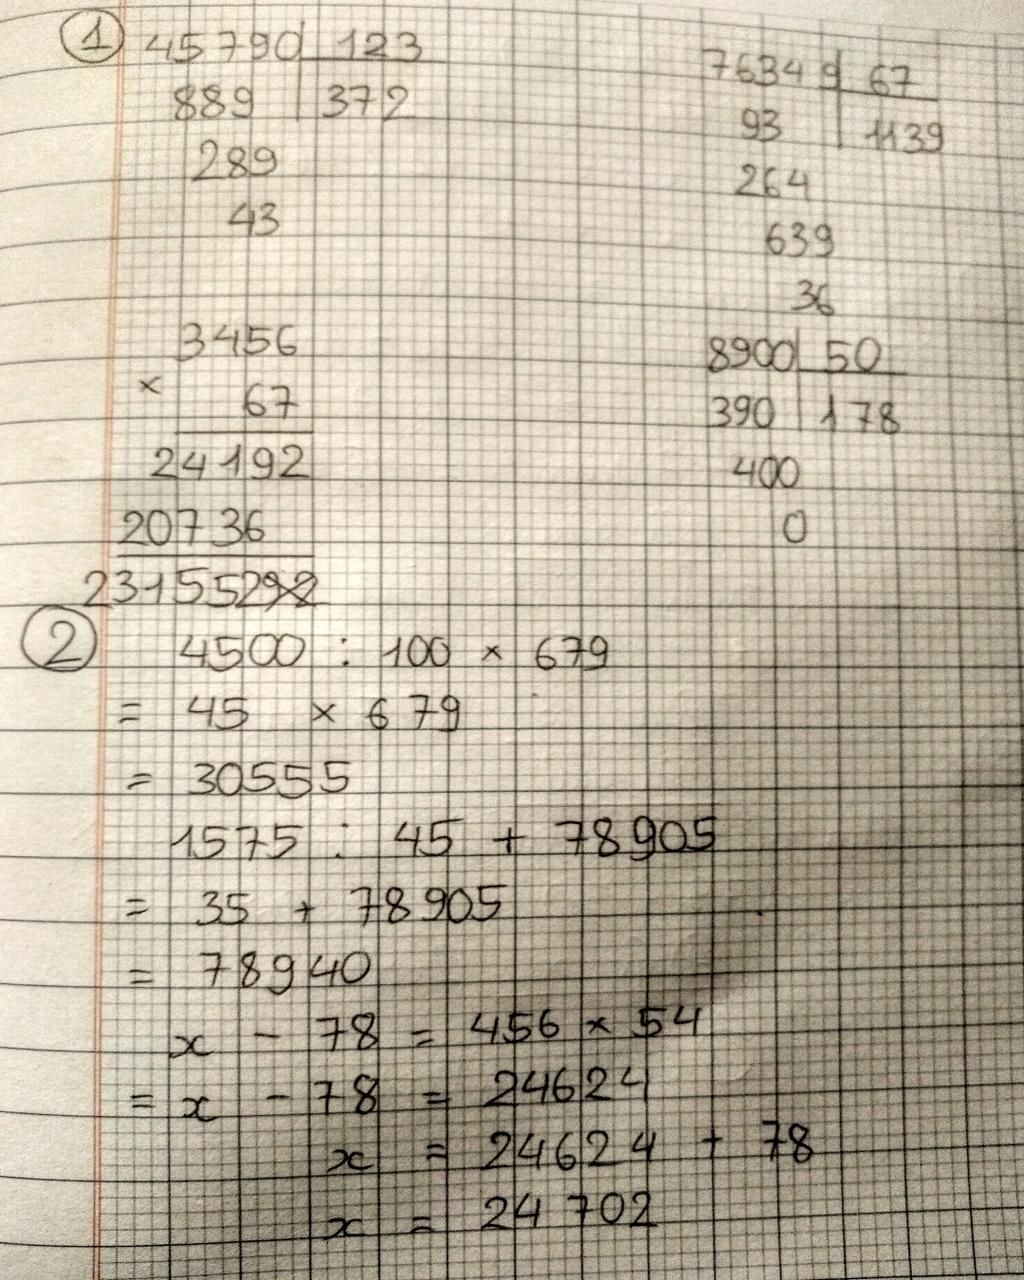 1 45790 123
889 372
289
43
76349 67
93 1139
264
639
36
3456
× 67
24192
20736
231552
8900 50
390 178
400
0
2 4500 : 100 × 679
= 45 × 679
= 30555
1575 : 45 + 78905
= 35 + 78905
= 78940
x - 78 = 456 × 54
= x - 78 = 24624
x = 24624 + 78
x = 24702